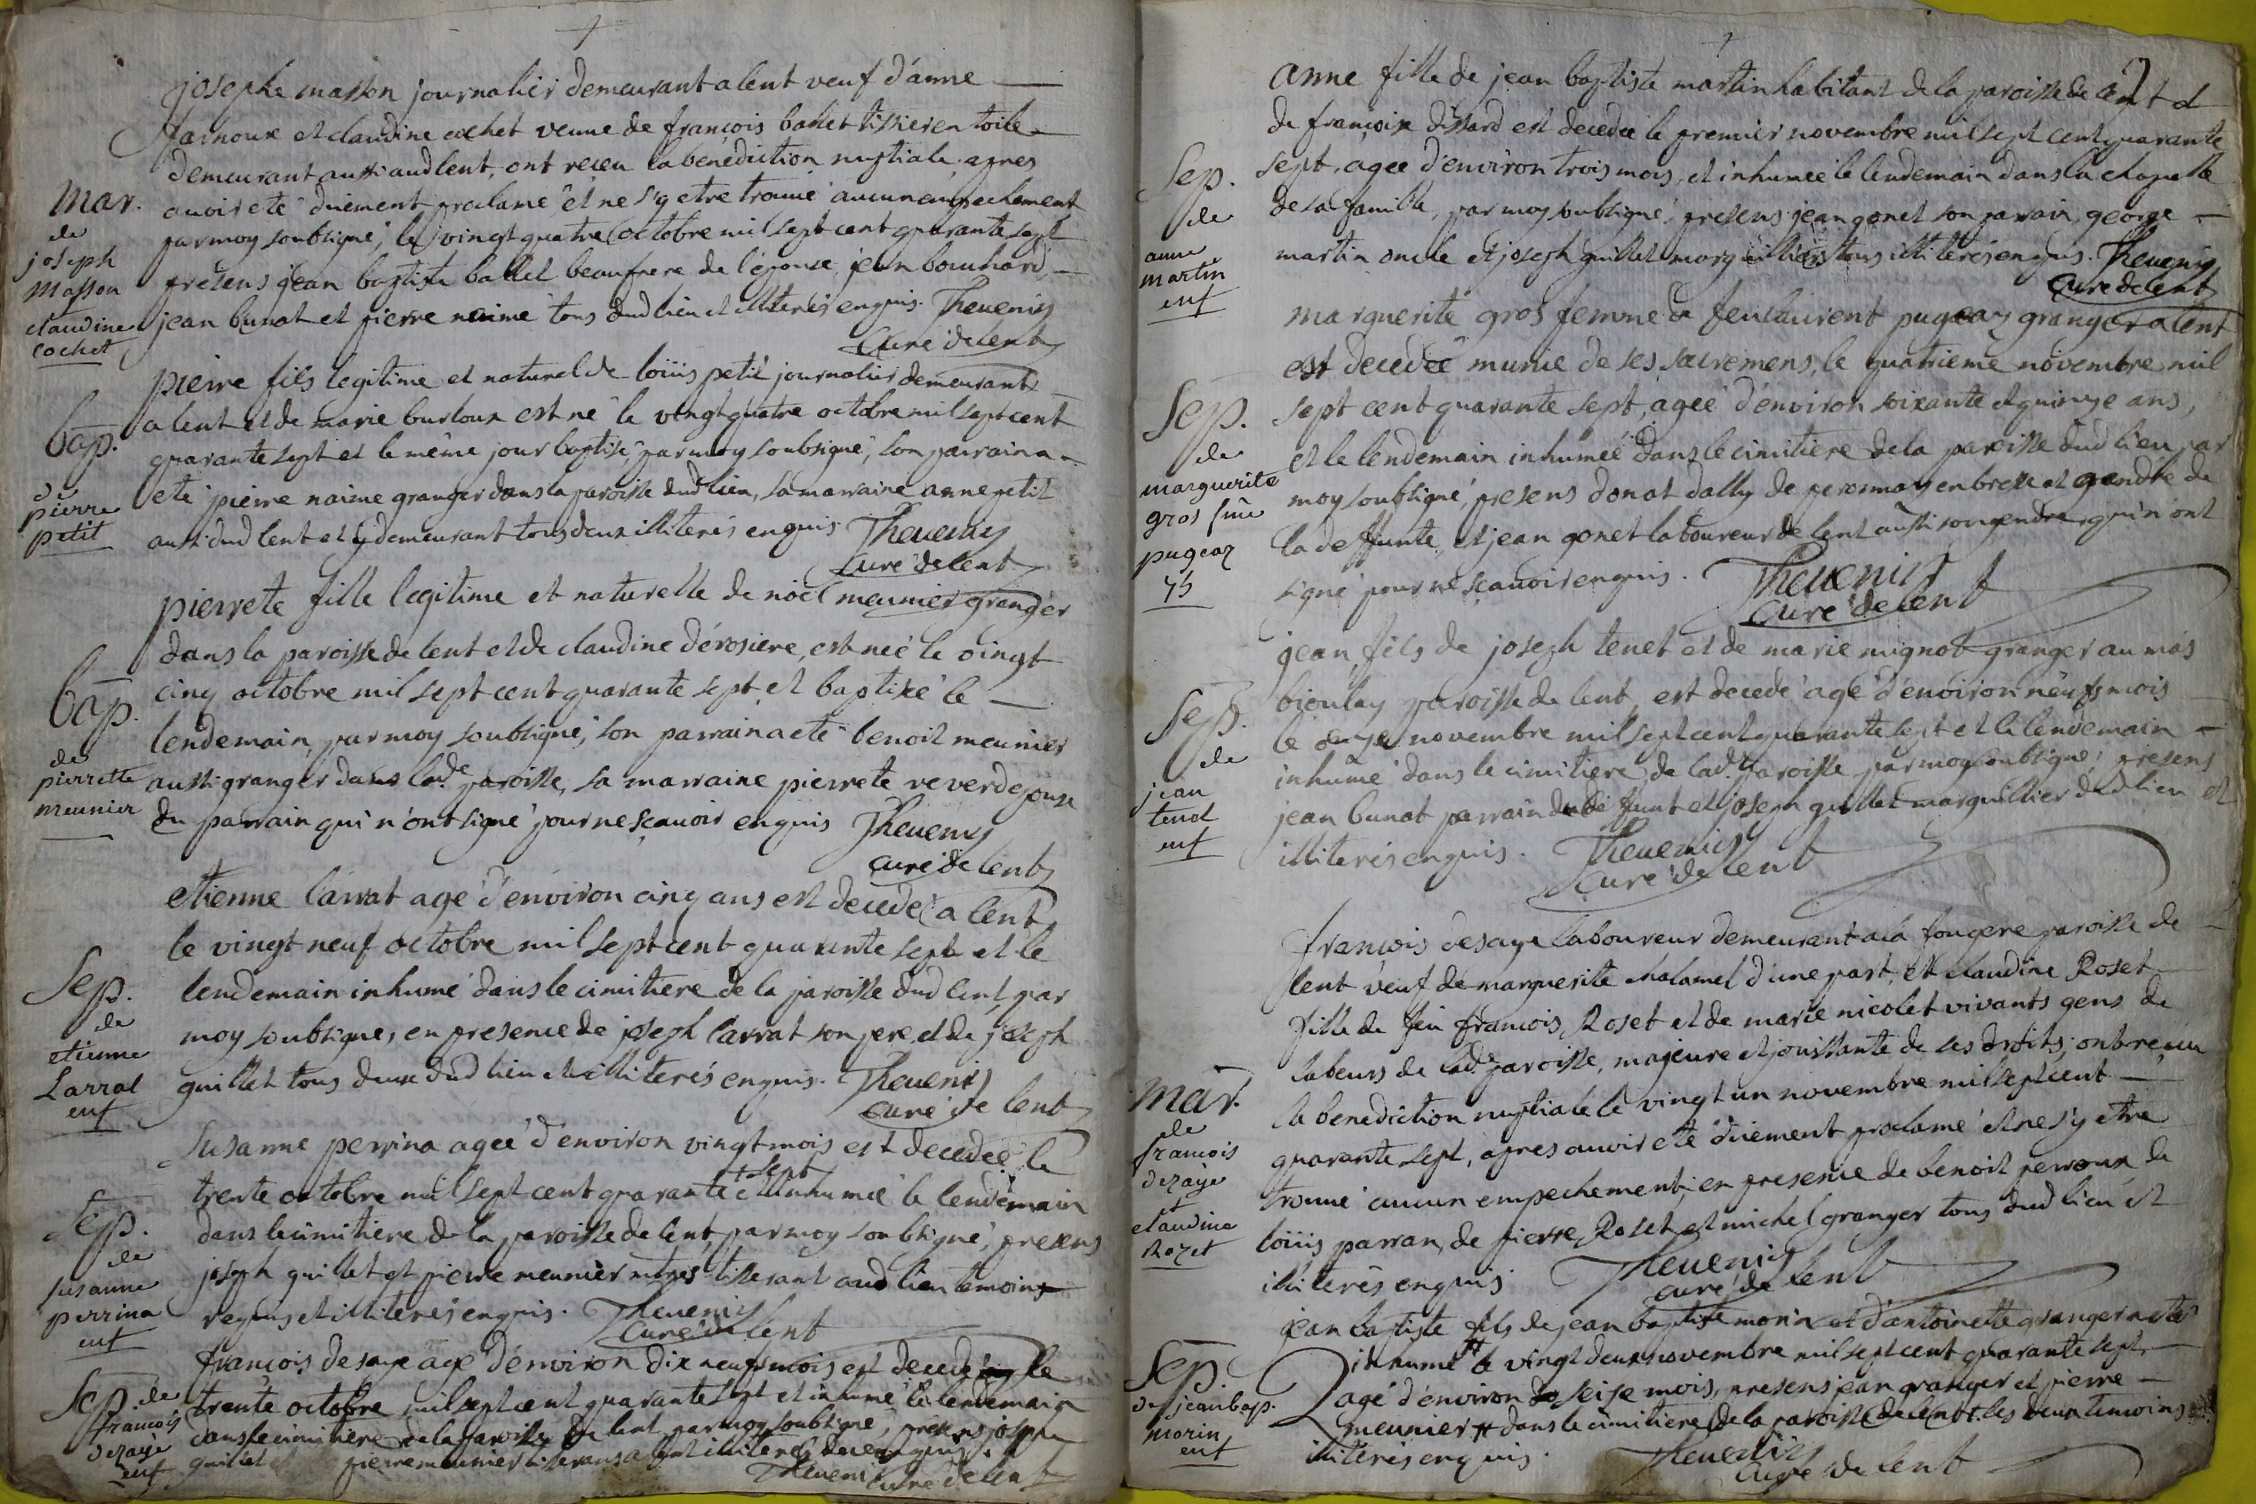 joseph masson journalier demeurant a lent veuf d'anne
farnoux et claudine cochet veuve de francois ballet tissier en toile
demeurant aussi aud lent, ont receu la bénediction nuptiale, apres
avoir eté düement proclamé, et ne s'y etre trouvé aucun empechement
par moy soubsigné, le vingt quatre octobre mil sept cent quarante sept
presens jean baptiste ballet beaufrere de l'épouse, jean bouchard
jean bunat et pierre naime tous dud lieu et illiterés enquis. Thevenin
curé de lent
mar.
de
joseph
Masson
claudine
cochet
pierre fils legitime et naturel de loüis petit journalier demeurant
a lent et de marie burloux est né le vingt quatre octobre mil sept cent
quarante sept et le même jour baptisé, par moy soubsigné, son parrain a
eté pierre naime granger dans la paroisse dud lieu, sa marraine anne petit
aussi dud lent et y demeurant tous deux illiterés enquis Thevenin
curé de lent
bap.
de
pierre
petit
pierrete fille legitime et naturelle de noël meunier granger
dans la paroisse de lent et de claudine dérosiere, est neé le vingt
cinq octobre mil sept cent quarante sept et baptixé le
lendemain, par moy soubsigné, son parrain a eté benoit meunier
aussi granger dans lad.e paroisse, sa marraine pierrete reverd epouse
du parrain qui n'ont signé pour ne sçavoir enquis Thevenin
curé de lent
bap.
de
pierrette
meunier
etienne larrat agé d'environ cinq ans est decedé a lent
le vingt neuf octobre mil sept cent quarante sept et le
lendemain inhumé dans le cimitiere de la paroisse dud lent, par
moy soubsigné, en presence de joseph larrat son pere, et de joseph
guillet tous deux dud lieu et illiterés enquis. Thevenin
curé de lent
Sep.
de
etienne
Larrat
enf
Susanne perrina ageé d'environ vingt mois est decedeé le
trente octobre mil sept cent quarante + sept et inhumeé le lendemain
dans le cimitiere de la paroisse de lent, par moy soubsigné, presens
joseph guillet et pierre meunier tisserant aud lieu temoins
requis et illiterés enquis. Thevenin
curé de lent
Sep.
de
susanne
perrina
enf
françois desaye agé d'environ dix neuf mois est decedé le
trente octobre mil sept cent quarante sept et inhumé le lendemain
dans le cimitiere de la paroisse de lent par moy soubsigné, presens joseph
guillet pierre meunier tisserans a lent illiterés enquis.
Thevenin curé de lent
Sep. de
francois
dezaye
enf
anne fille de jean baptiste martin habitant de la paroisse de lent et
de françoise dissard est decedeé le premier novembre mil sept cent quarante
sept, ageé d'environ trois mois, et inhumeé le lendemain dans la chapelle
de sa famille, par moy soubsigné, presens jean gonet son parrain, george
martin oncle et joseph guillet marguilliers tous illiterés enquis. Thevenin
curé de lent
Sep.
de
anne
martin
enf
marguerite gros femme de feu laurent pugeaz granger a lent
est decedeé munie de ses sacremens, le quatrieme novembre mil
sept cent quarante sept, ageé d'environ soixante et quinze ans,
et le lendemain inhumeé dans le cimitiere de la paroisse dud lieu par
moy soubsigné, presens donat dally de peronnas en bresse et gendre de
la deffunte, et jean gonet laboureur de lent aussi son gendre, qui n'ont
signé pour ne sçavoir enquis. Thevenin
curé de lent
Sep.
de
marguerite
gros fme
pugeaz
75
jean fils de joseph tenet et de marie mignot granger au mas
bioulay paroisse de lent, est decedé agé d'environ neuf mois
le onze novembre mil sept cent quarante sept et le lendemain
inhumé dans le cimitiere de lad. paroisse par moy soubsigné, presens
jean bunat parrain du défunt et joseph guillet marguillier dud lieu et
illiterés enquis. Thevenin
curé de lent
Sep.
de
jean
tenet
enf
françois desaye laboureur demeurant a la fougere paroisse de
lent veuf de marguerite chalamel d'une part, et claudine Roset
fille de feu francois Roset et de marie nicolet vivants gens de
labeurs de lad.e paroisse, majeure et jouissante de ses droits, ont receu
la benediction nuptiale le vingt un novembre mil sept cent
quarante sept, apres avoir eté düement proclamé et ne s'y etre
trouvé aucun empechement, en presence de benoit perroux, de
loüis parran, de pierre Roset et michel granger tous dud lieu et
illiterés enquis. Thevenin
curé de lent
mar.
de
francois
dezaye
et
claudine
Rozet
jean baptiste fils de jean baptiste morin et d'antoinette granger a eté
inhumé # le vingt deux novembre mil sept cent quarante sept,
agé d'environ seize mois, presens jean granger et pierre
meunier # dans le cimitiere de la paroisse de lent. les deux temoins
illiterés enquis. Thevenin
curé de lent
Sep.
de jean bap.
morin
enf